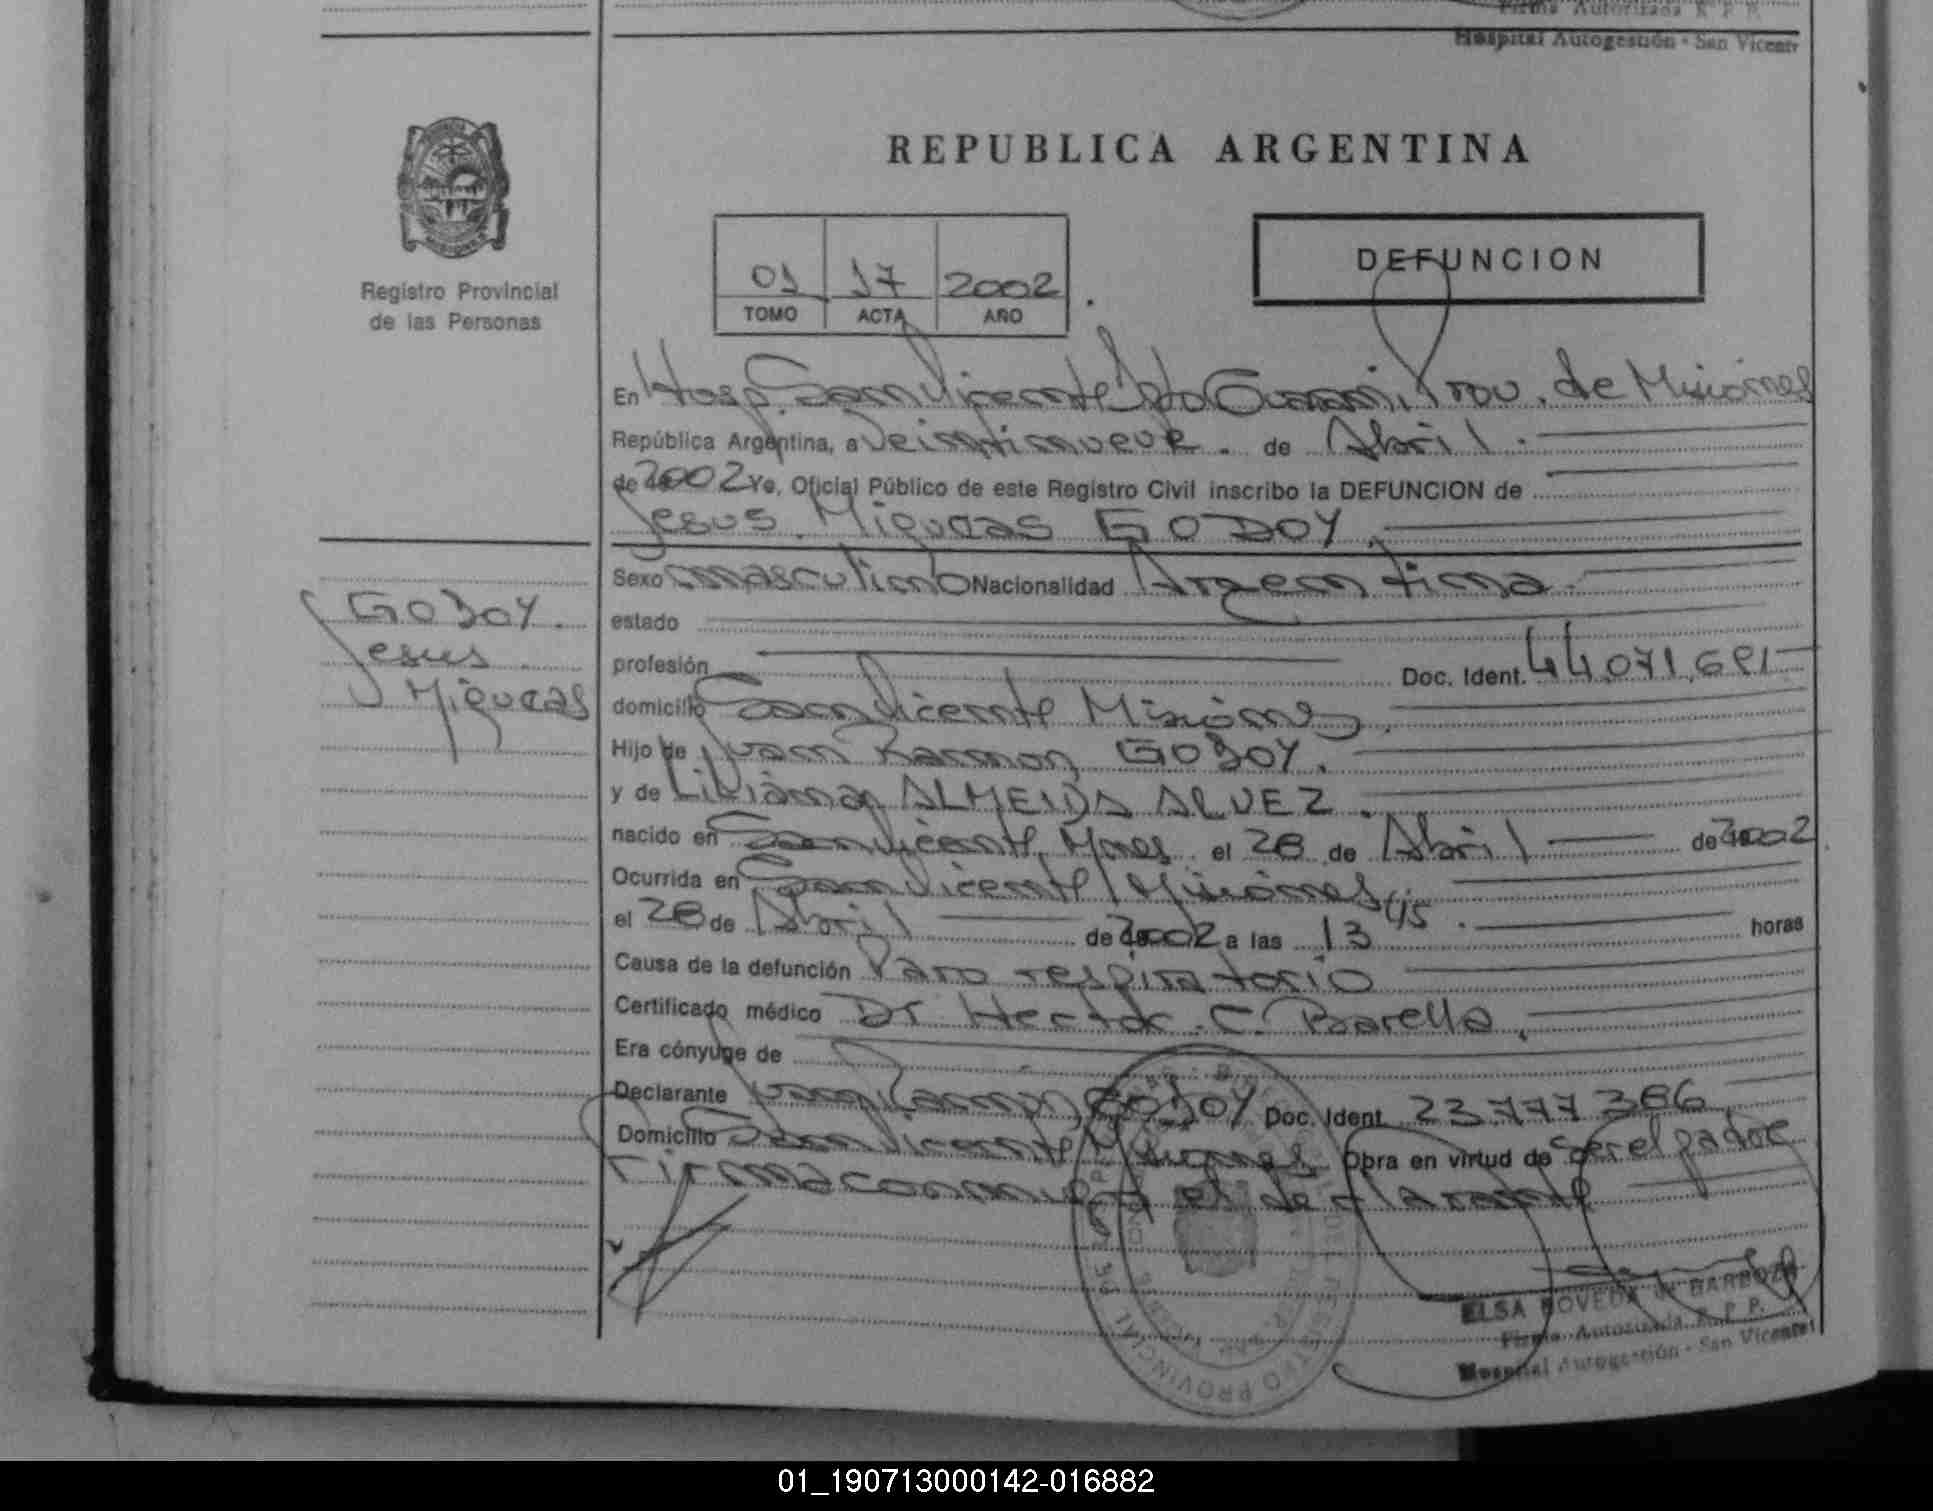 Firma Autorizada R P P.
Hospital Autogestión - San Vicente
REPUBLICA ARGENTINA
Registro Provincial
de las Personas
01 17 2002
TOMO ACTA AÑO
DEFUNCION
En Hosp. San Vicente Dpto Guarani, Prov. de Misiones
República Argentina, a Veintinueve. de Abril.
de 2002 Yo, Oficial Público de este Registro Civil inscribo la DEFUNCION de
Jesus. Miqueas GODOY,
Sexo masculino Nacionalidad Argentina.
estado
profesión Doc. Ident. 44.071.691
domicilio San Vicente Misiones,
Hijo de Juan Ramon GODOY.
y de Liliana ALMEIDA ALVEZ.
nacido en San Vicente, Mnes. el 28 de Abril de 2002
Ocurrida en San Vicente, Misiones
el 28 de Abril de 2002 a las 13 45. horas
Causa de la defunción Paro respiratorio
Certificado médico Dr Hector. C. Barella,
Era cónyuge de
Declarante Juan Ramon, GODOY Doc. Ident. 23.777.386
Domicilio San Vicente Misiones Obra en virtud de ser el padre
Firma conmigo el declarante
GODOY.
Jesus
Miqueas
REGISTRO PROVINCIAL DE LAS
ELSA POVEDA de BARBOZA
Firma Autorizada R. P. P.
Hospital Autogestión - San Vicente
01_190713000142-016882